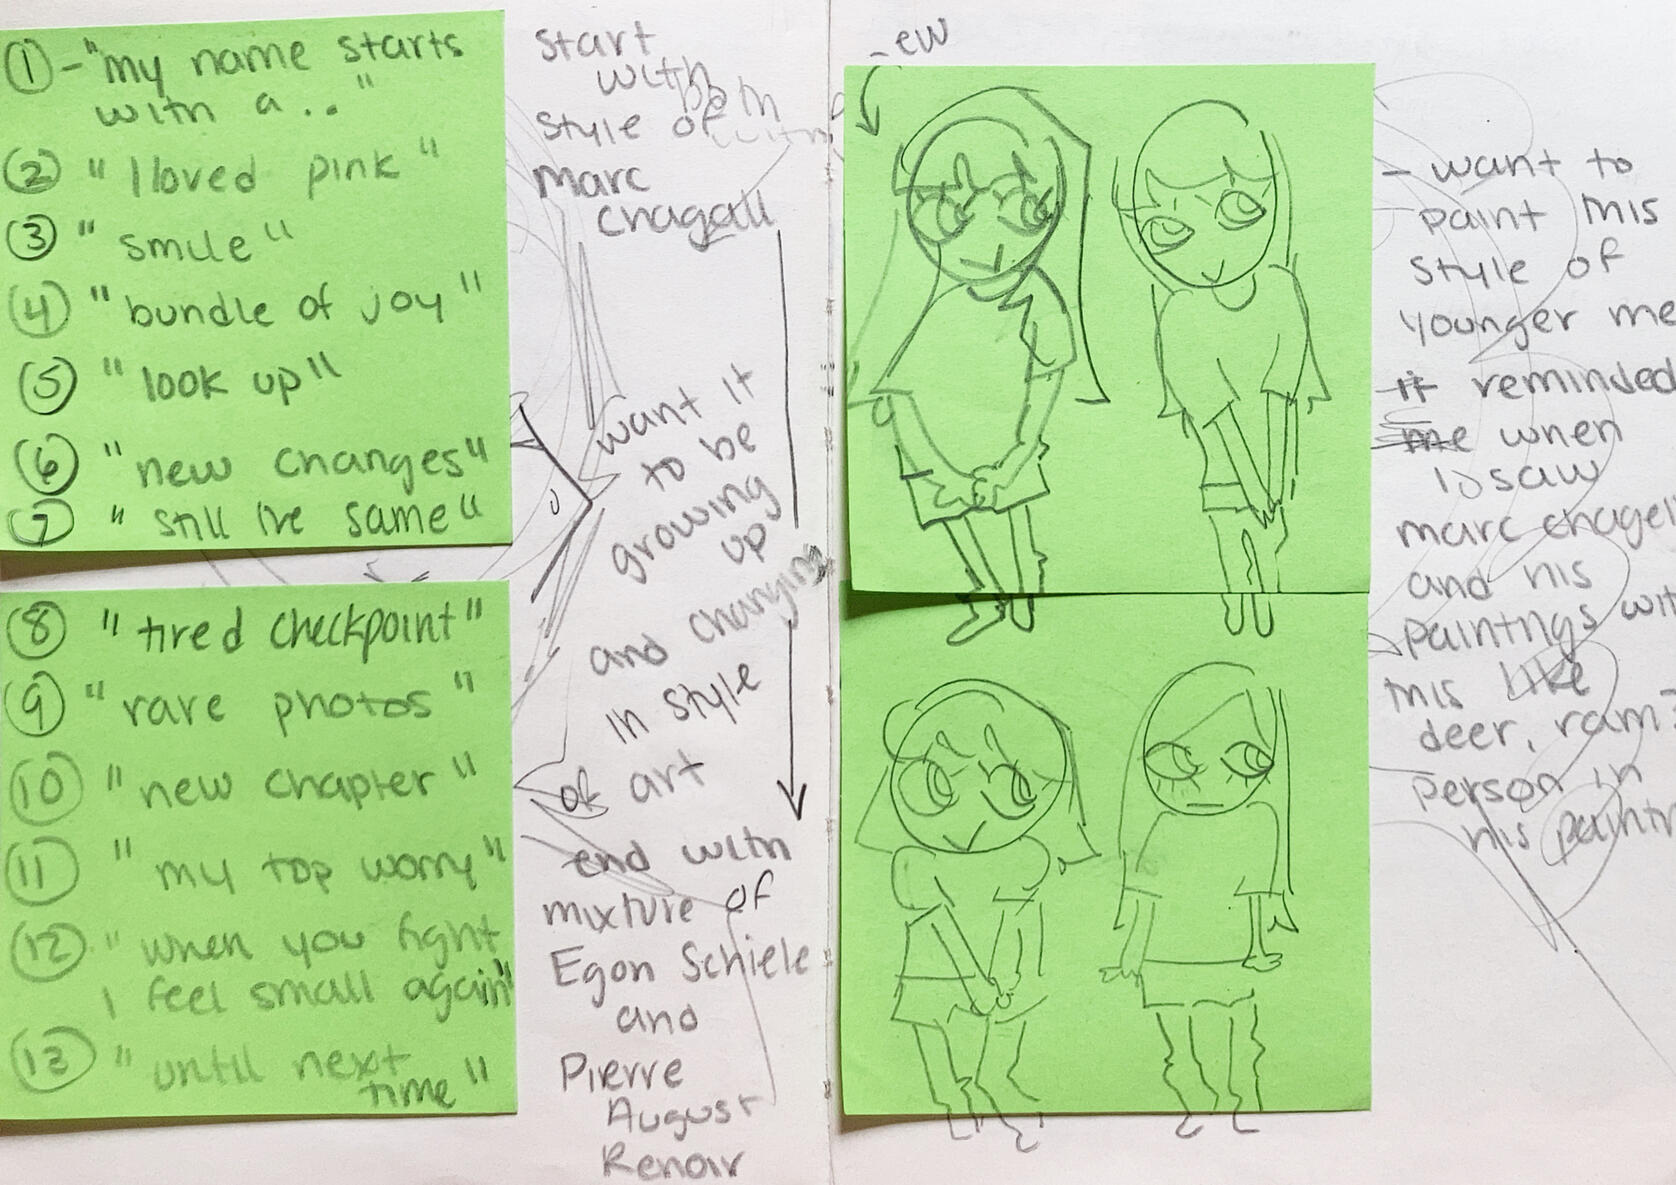 ① - "my name starts
with a.."
② "I loved pink"
③ "smile"
④ "bundle of joy"
⑤ "look up"
⑥ "new changes"
⑦ "still the same"
⑧ "tired checkpoint"
⑨ "rare photos"
⑩ "new chapter"
⑪ "my top worry"
⑫ "when you fight
I feel small again"
⑬ "until next
time"
start
with
style of
marc
chagall
want it
to be
growing
up
and changing
in style
of art
end with
mixture of
Egon Schiele
and
Pierre
August
Renoir
- ew
- want to
paint this
style of
younger me
it reminded
me when
I saw
marc chagell
and his
paintngs wit
this like
deer, ram
person in
his paint